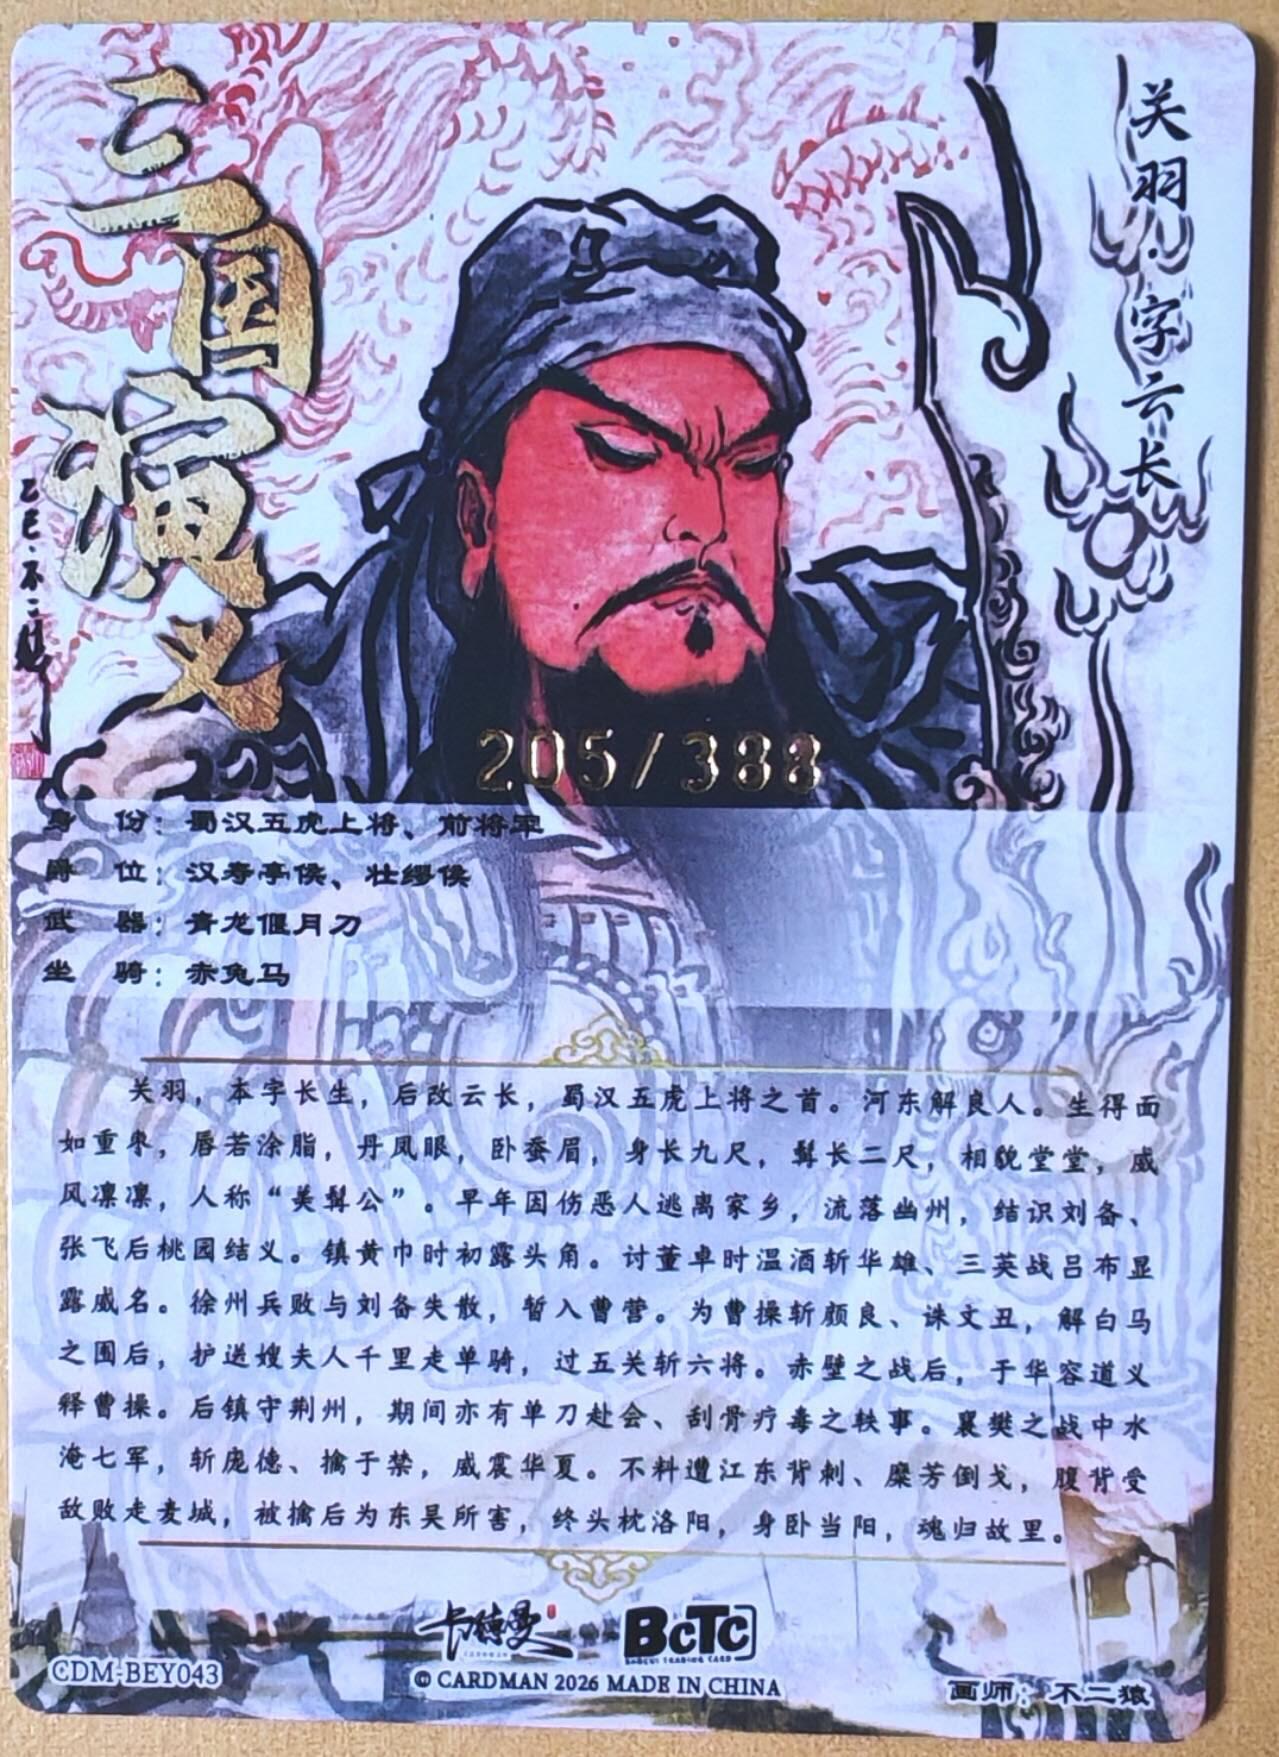 三国演义
乙巳·不二猿
关羽·字云长
205/388
身 份：蜀汉五虎上将、前将军
爵 位：汉寿亭侯、壮缪侯
武 器：青龙偃月刀
坐 骑：赤兔马
关羽，本字长生，后改云长，蜀汉五虎上将之首。河东解良人。生得面
如重枣，唇若涂脂，丹凤眼，卧蚕眉，身长九尺，髯长二尺，相貌堂堂，威
风凛凛，人称“美髯公”。早年因伤恶人逃离家乡，流落幽州，结识刘备、
张飞后桃园结义。镇黄巾时初露头角。讨董卓时温酒斩华雄、三英战吕布显
露威名。徐州兵败与刘备失散，暂入曹营。为曹操斩颜良、诛文丑，解白马
之围后，护送嫂夫人千里走单骑，过五关斩六将。赤壁之战后，于华容道义
释曹操。后镇守荆州，期间亦有单刀赴会、刮骨疗毒之轶事。襄樊之战中水
淹七军，斩庞德、擒于禁，威震华夏。不料遭江东背刺、糜芳倒戈，腹背受
敌败走麦城，被擒后为东吴所害，终头枕洛阳，身卧当阳，魂归故里。
卡德曼
BCTC
CDM-BEY043
© CARDMAN 2026 MADE IN CHINA
画师：不二猿